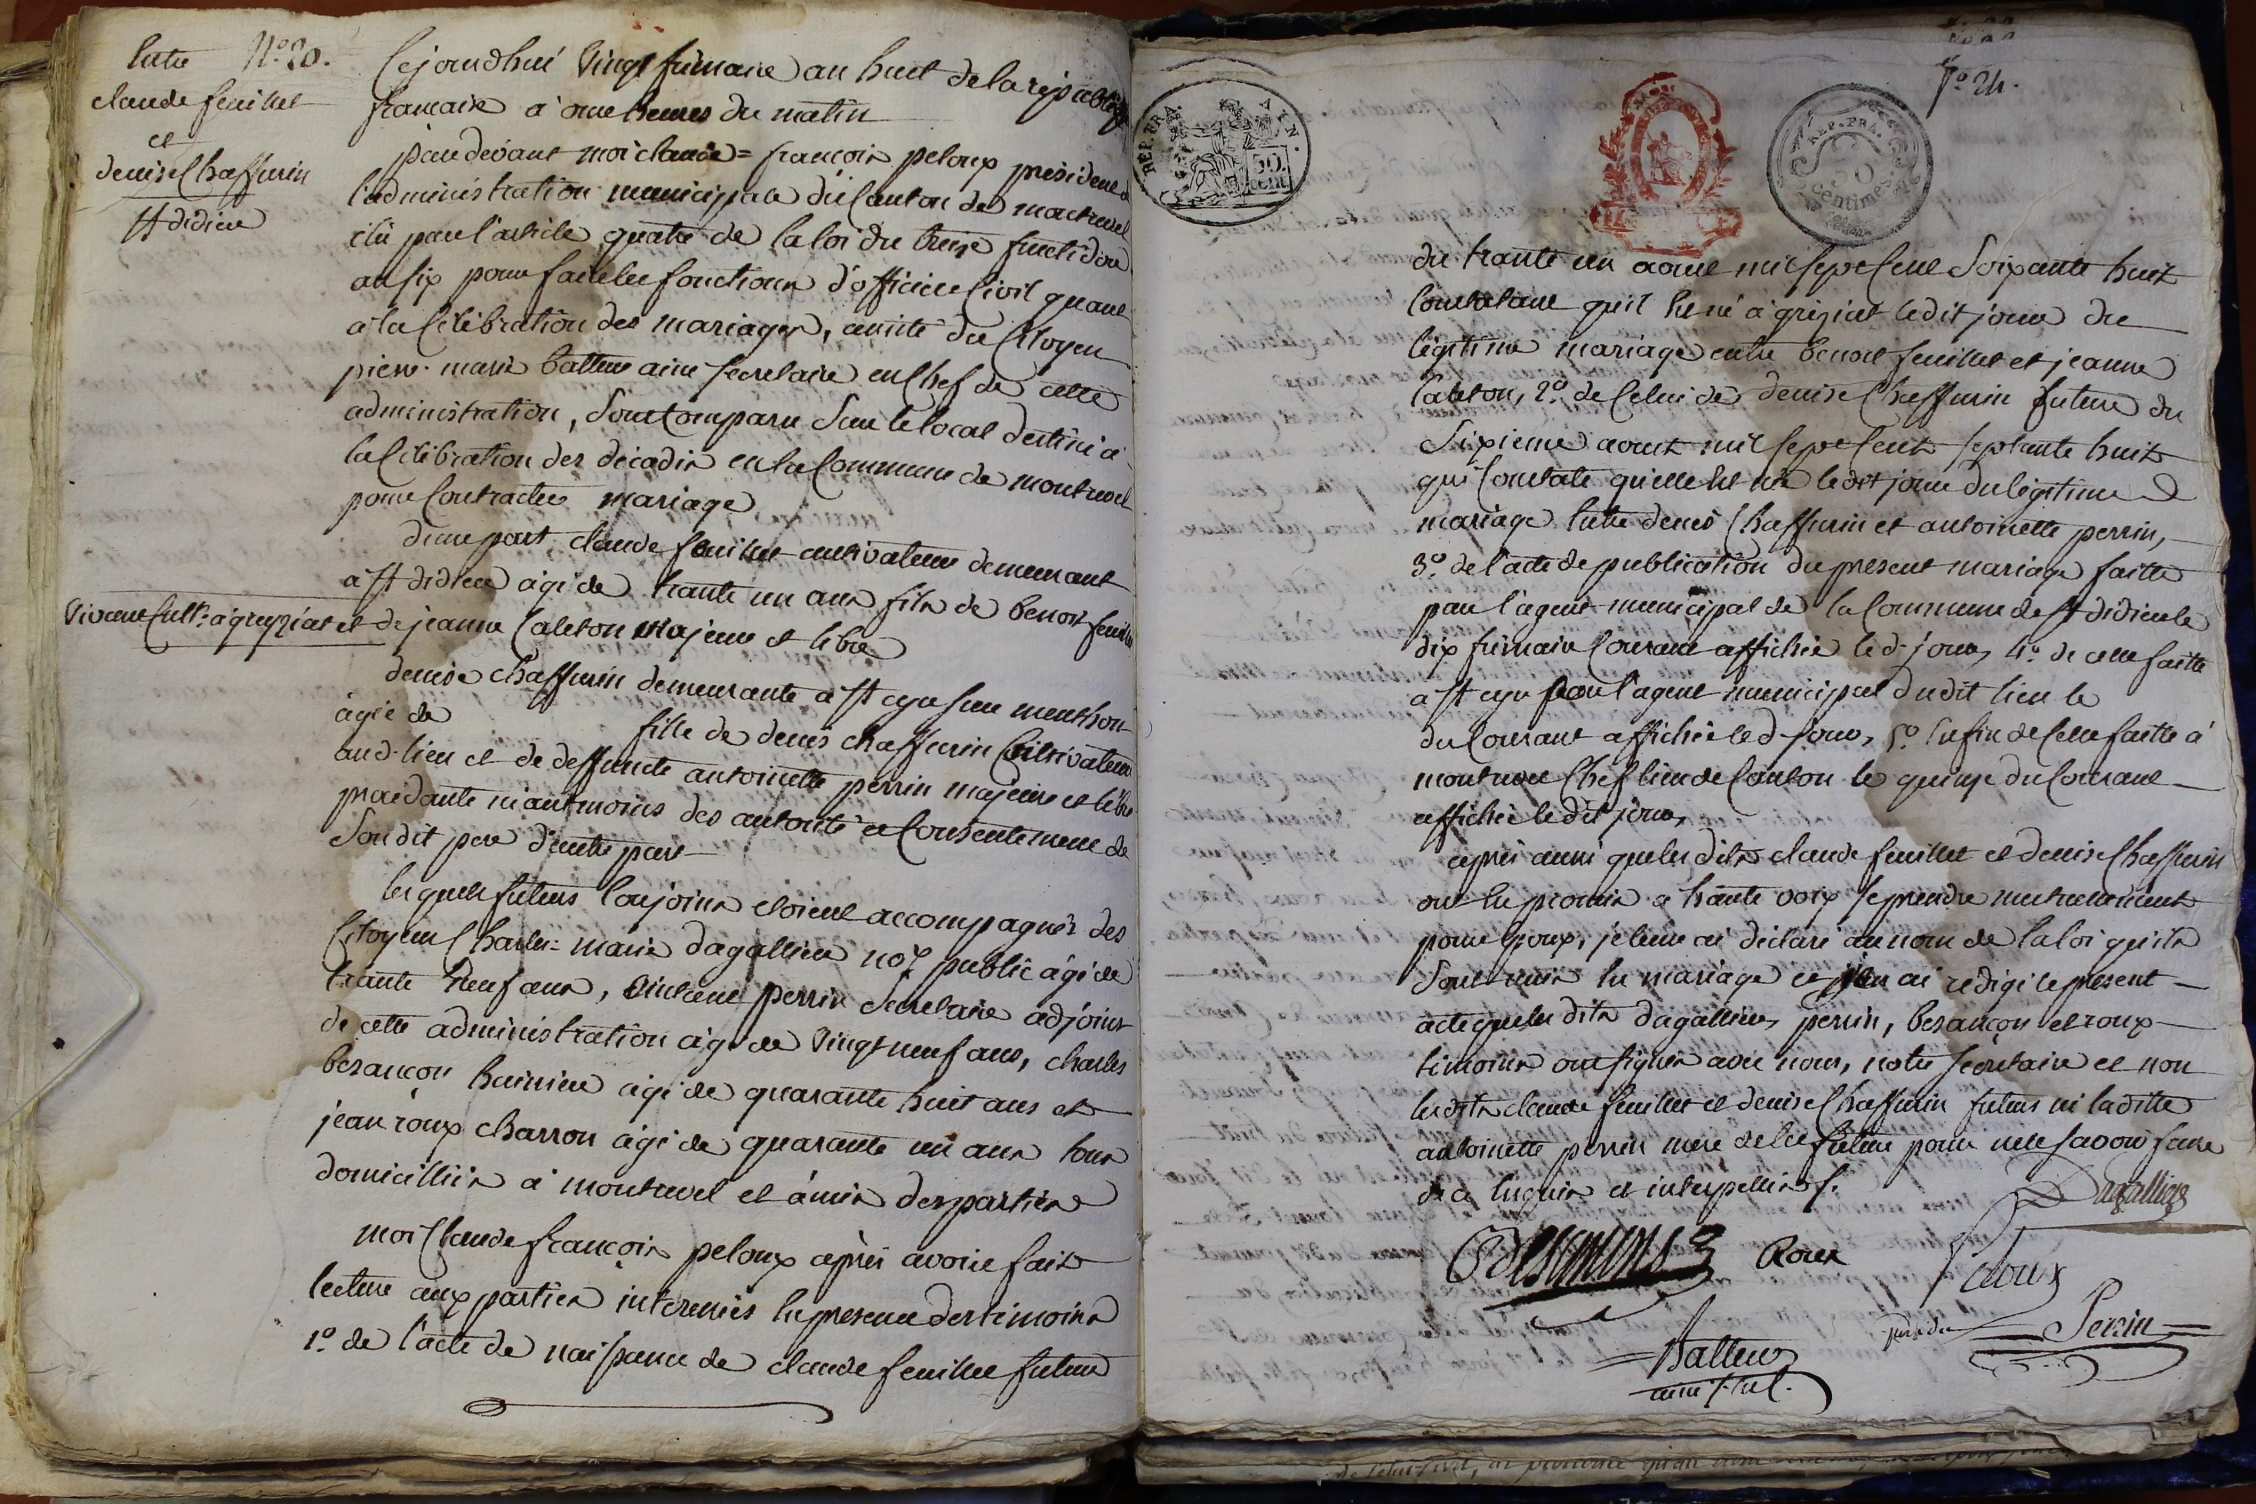 Entre N.° 20.
claude feuillet
et
denise Chaffurin
St didier
Cejourdhui vingt frimaire an huit de la republique
francaise a onze heures du matin
pardevant moi claude=francois peloux president de
l'administration municipale du Canton de montrevel
élu par l'article quatre de la loi du treize fructidor
an six pour faire les fonctions d'officier Civil quant
a la Célébration des mariages, assisté du Citoyen
pierre-marie battur ainé secretaire en Chef de cette
administration, sont comparu dans le local destiné a
la Célébration des décadis en la Commune de montrevel
pour Contracter mariage
d'une part claude feuillet cultivateur demeurant
a St didier agé de trante un ans fils de benoit feuillet
vivant Cult.r a greziat et de jeanne Caleton majeur et libre
denise chaffurin demeurante a St cyr sur menthon
agée de fille de denis chaffurin Cultivateur
aud. lieu et de deffuncte antoinette perrin majeure et libre
procédante néantmoins des autorité et Consentement de
son dit pere d'autre part
lesquels futurs Conjoins etoient accompagnés des
Citoyens Charles=marie dagallier no.re public agé de
trante neuf ans, vincent perrin secretaire adjoint
de cette administration agé de vingt neuf ans, charles
besançon huissier agé de quarante huit ans et
jean roux charron agé de quarante un ans tous
domicilliés a montrevel et amis des parties
moi Claude francois peloux après avoir fait
lecture aux parties intéressées en presence des témoins
1.° de l'acte de naissance de claude feuillet futur
REP. FRA.
50
cent.
REP. FRA.
50
centimes
f.° 24.
du trante un aout mil sept Cent soixante huit
Constatant qu'il est né a greziat ledit jour du
légitime mariage entre benoit feuillet et jeanne
Caleton, 2.° de Celui de denise Chaffurin future du
sixieme aoust mil sept Cent septante huit
qui Constate qu'elle est née ledit jour du légitime
mariage entre denis Chaffurin et antoinette perrin,
3.° de l'acte de publication du présent mariage faitte
par l'agent municipal de la Commune de St didier le
dix frimaire Courant affichée led. jour, 4.° de celle faitte
a St cyr par l'agent municipal dudit lieu le
du Courant affichée led. jour, 5.° Enfin de Celle faitte a
montrevel Chef lieu de Canton le quinze du Courant
affichée ledit jour,
après aussi que lesdits claude feuillet et denise Chaffurin
ont eu promis a haute voix se prendre mutuellement
pour Epoux, je leur ai déclaré au nom de la loi qu'ils
sont unis En mariage et j'en ai redigé le present
acte que lesdits dagallier, perrin, besançon et roux
témoins ont signés avec nous, notre secretaire et non
lesdits claude feuillet et denise Chaffurin futurs ni laditte
antoinette perrin mere de la future pour ne le savoir faire
de ce Enquis et interpellés f.
Dagallier
Roux
Peloux
présdt
Perrin
Battur
ainé s.re